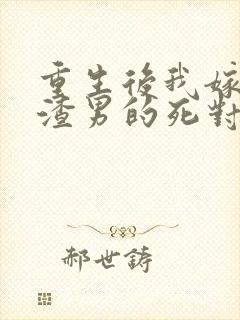 重生後我嫁
渣男的死對
郝世鋳